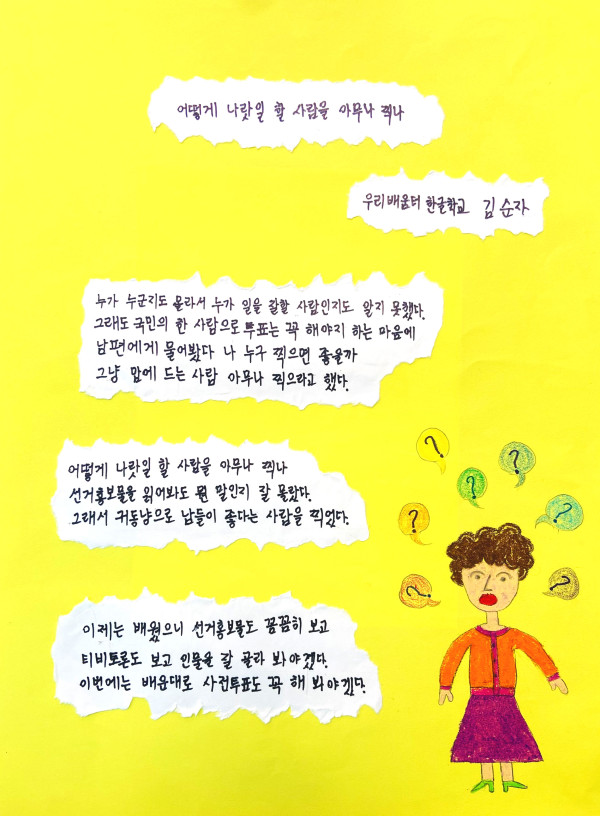 어떻게 나랏일 할 사람을 아무나 찍나
우리배움터 한글학교 김순자
누가 누군지도 몰라서 누가 일을 잘할 사람인지도 알지 못했다.
그래도 국민의 한 사람으로 투표는 꼭 해야지 하는 마음에
남편에게 물어봤다 나 누구 찍으면 좋을까
그냥 맘에 드는 사람 아무나 찍으라고 했다.
어떻게 나랏일 할 사람을 아무나 찍나
선거홍보물을 읽어봐도 뭔 말인지 잘 몰랐다.
그래서 귀동냥으로 남들이 좋다는 사람을 찍었다.
이제는 배웠으니 선거홍보물도 꼼꼼히 보고
티비토론도 보고 인물을 잘 골라 봐야겠다.
이번에는 배운대로 사전투표도 꼭 해 봐야겠다.
?
?
?
?
?
?
?